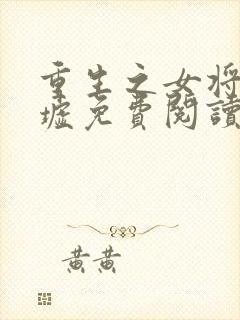 重生之女将
墟免費閱讀
黄黄